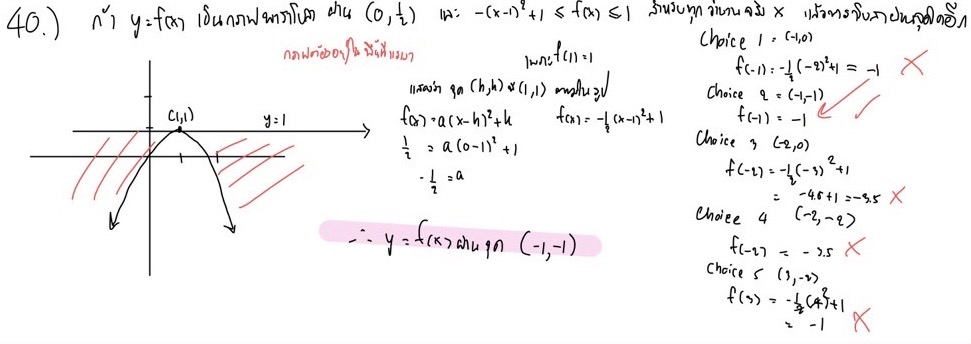 40.) ถ้า y=f(x) เป็นกราฟพาราโบลา ผ่าน (0, 1/2) และ -(x-1)²+1 ≤ f(x) ≤ 1 สำหรับทุกจำนวนจริง x แล้วพาราโบลาผ่านจุดใดอีก
กราฟต้องอยู่ใน พื้นที่แรเงา
เพราะ f(1)=1
(1,1)
y=1
แสดงว่า จุด (h,k) คือ (1,1)
f(x)=a(x-h)²+k
1/2 = a(0-1)²+1
-1/2 = a
f(x)=-1/2(x-1)²+1
∴ y=f(x) ผ่านจุด (-1,-1)
Choice 1 = (-1,0)
f(-1) = -1/2(-2)²+1 = -1 ✗
Choice 2 = (-1,-1)
f(-1) = -1 ✓
Choice 3 (-2,0)
f(-2) = -1/2(-3)²+1
= -4.5+1 = -3.5 ✗
Choice 4 (-2,-2)
f(-2) = -3.5 ✗
Choice 5 (3,-2)
= -1 ✗